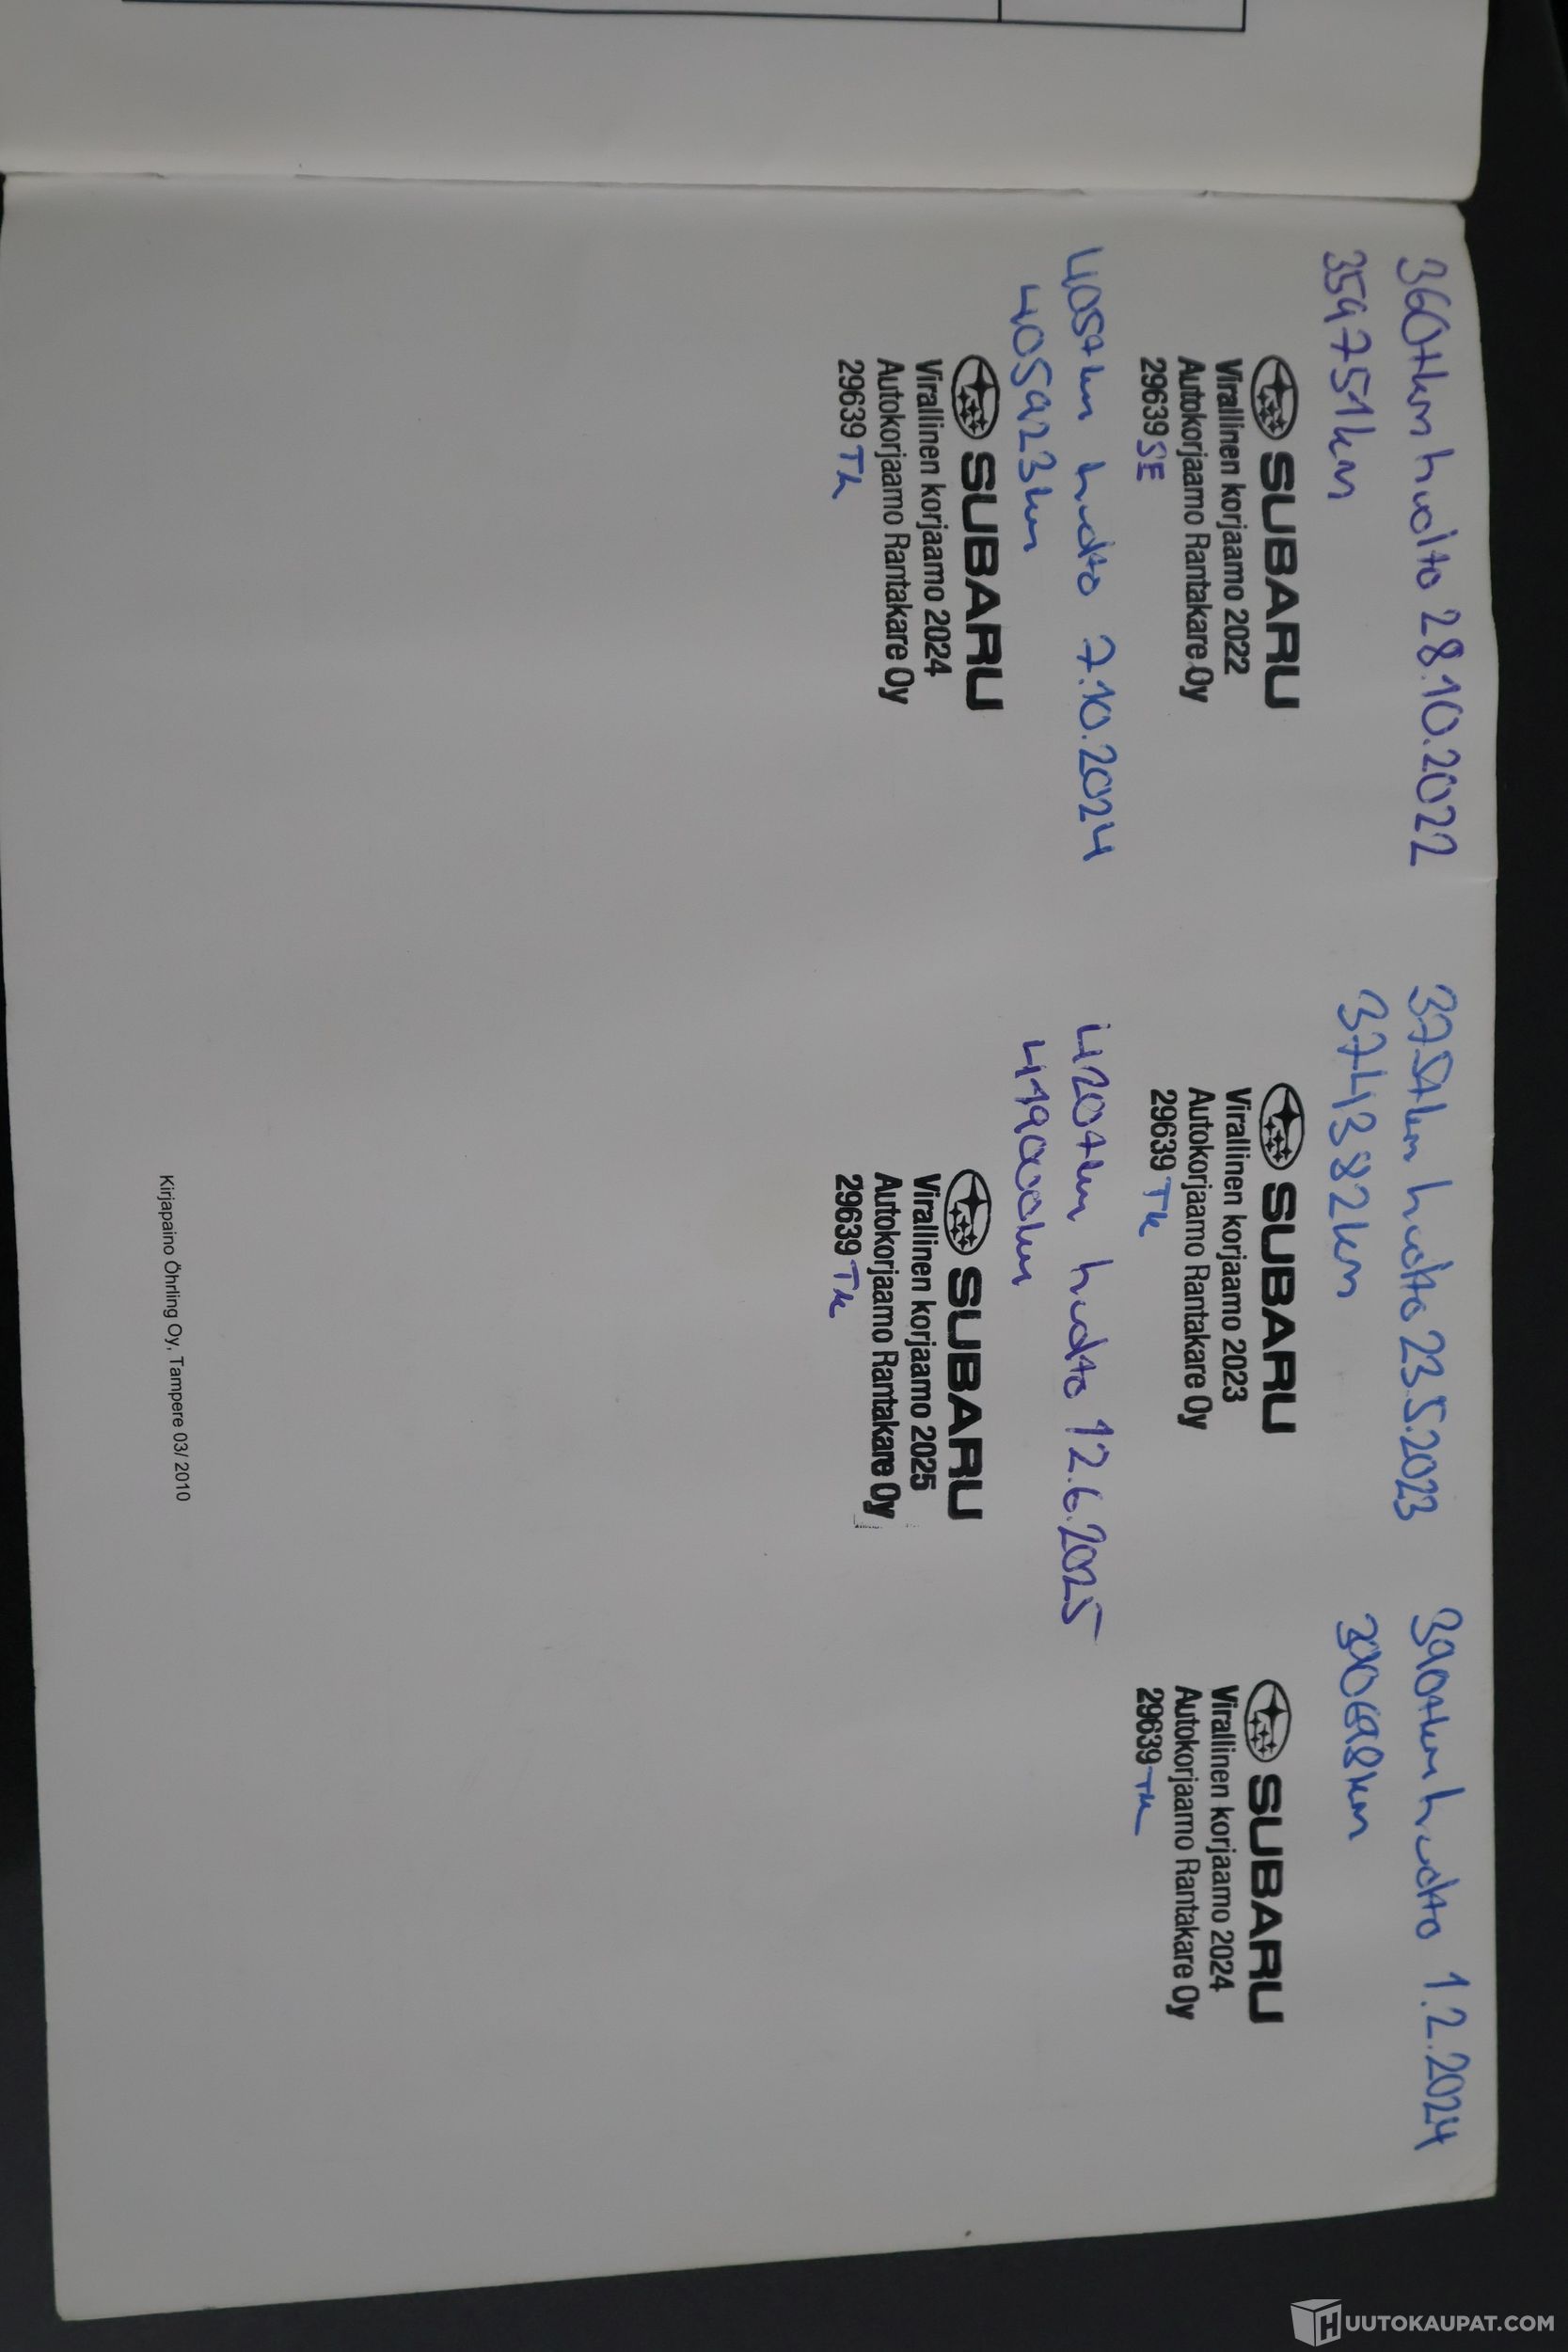 360tkm huolto 28.10.2022
359751km
SUBARU
Virallinen korjaamo 2022
Autokorjaamo Rantakare Oy
29639 SE
375tkm huolto 23.5.2023
374382km
SUBARU
Virallinen korjaamo 2023
Autokorjaamo Rantakare Oy
29639 Tk
390tkm huolto 1.2.2024
390698km
SUBARU
Virallinen korjaamo 2024
Autokorjaamo Rantakare Oy
29639 Tk
405tkm huolto 7.10.2024
405923km
SUBARU
Virallinen korjaamo 2024
Autokorjaamo Rantakare Oy
29639 Tk
420tkm huolto 12.6.2025
419000km
SUBARU
Virallinen korjaamo 2025
Autokorjaamo Rantakare Oy
29639 Tk
Kirjapaino Öhrling Oy, Tampere 03/ 2010
HUUTOKAUPAT.COM